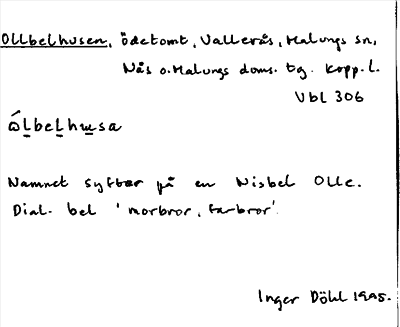 Ollbelhusen, ödetomt, Vallerås, Malungs sn,
Nås o. Malungs doms. tg. Kopp. l.
Vbl 306
ω̄́l̠bel̠hɯsa
Namnet syftar på en Nisbel Olle.
Dial. bel 'morbror, farbror'.
Inger Döhl 1995.